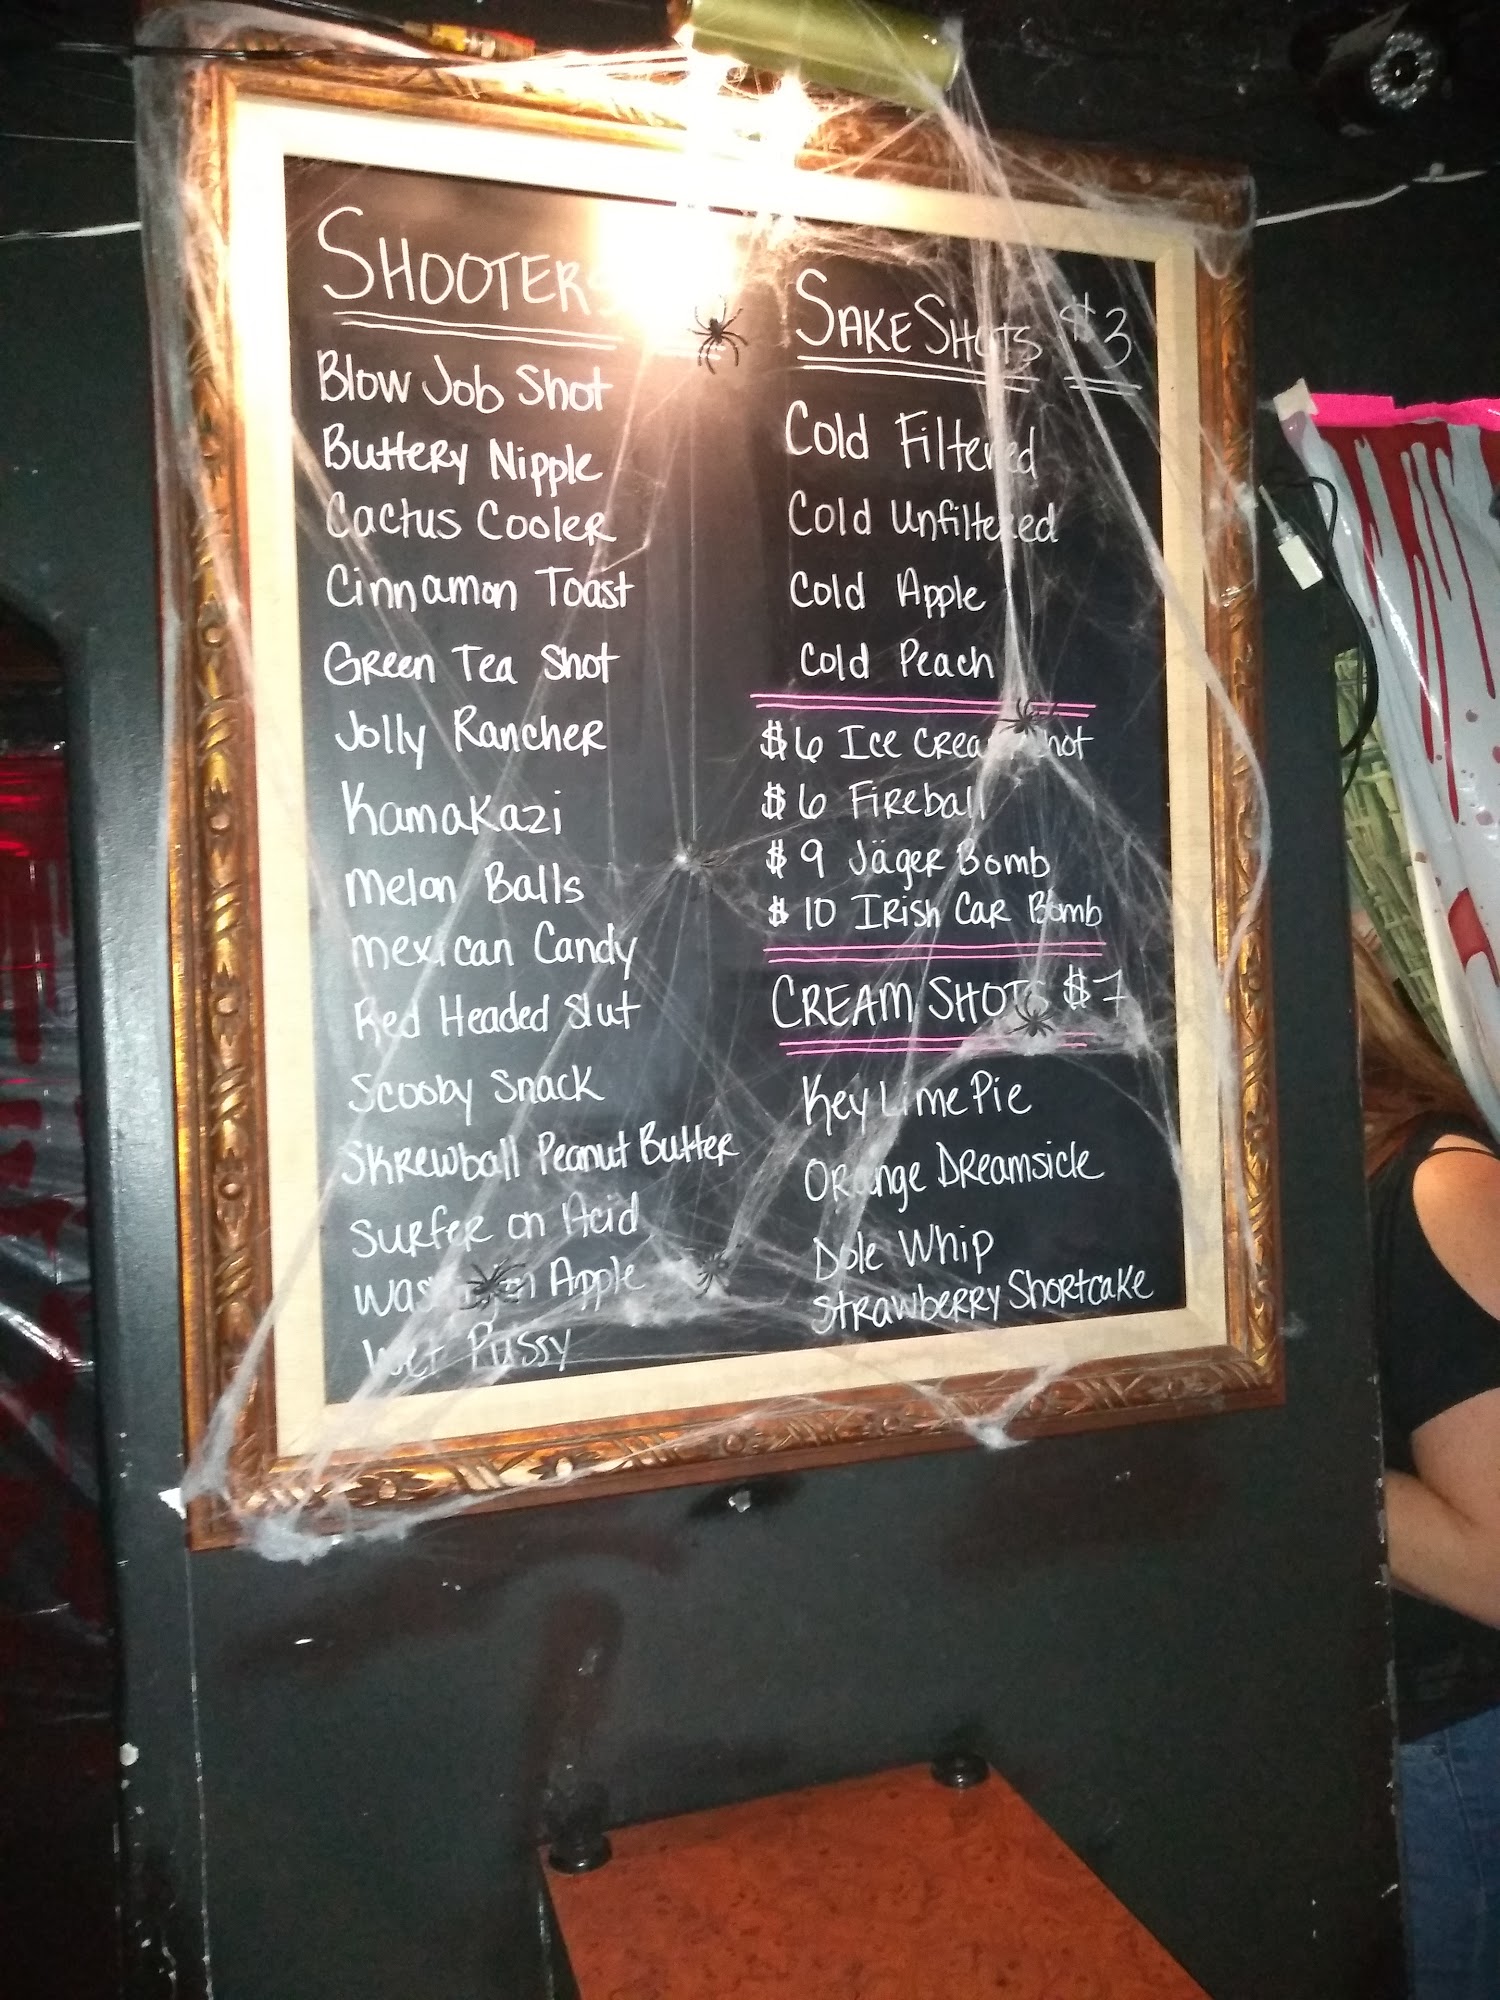 SHOOTERS
Blow Job Shot
Buttery Nipple
Cactus Cooler
Cinnamon Toast
Green Tea Shot
Jolly Rancher
Kamakazi
Melon Balls
Mexican Candy
Red Headed Slut
Scooby Snack
Skrewball Peanut Butter
Surfer on Acid
Washington Apple
Wet Pussy
SAKE SHOTS $3
Cold Filtered
Cold Unfiltered
Cold Apple
Cold Peach
$6 Ice Cream Shot
$6 Fireball
$9 Jäger Bomb
$10 Irish Car Bomb
CREAM SHOTS $7
Key Lime Pie
Orange Dreamsicle
Dole Whip
Strawberry Shortcake